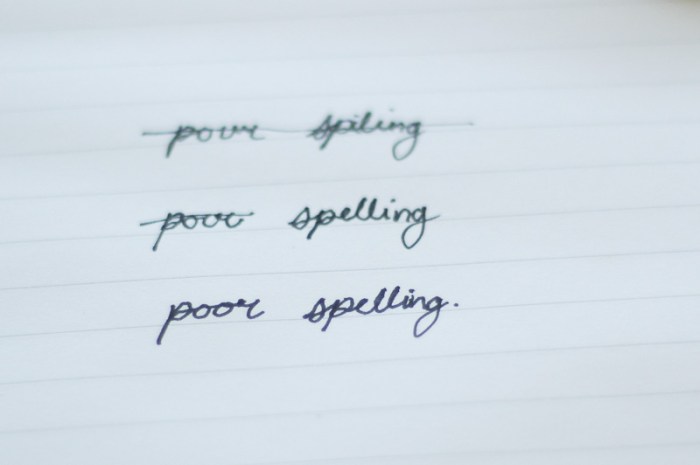 pour spiling
pour spelling
poor spelling.